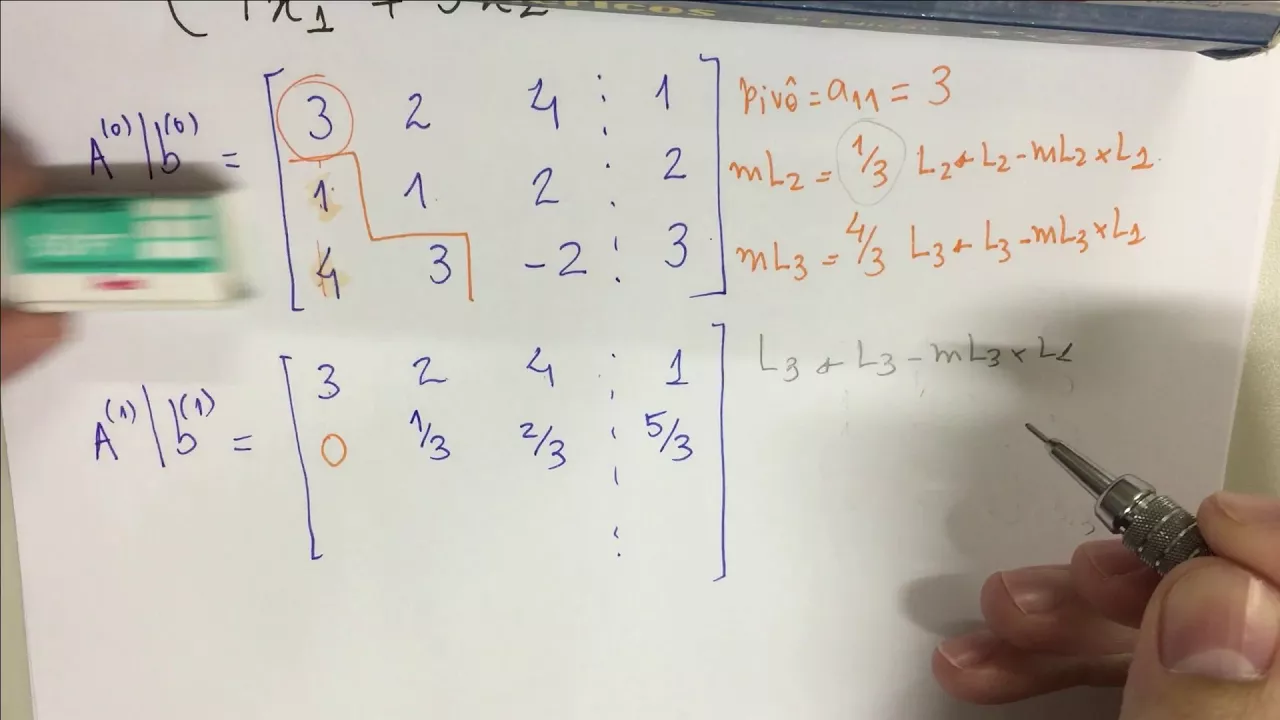 x₁ +
A⁽⁰⁾|b⁽⁰⁾ =
3 2 4 ⋮ 1
1 1 2 ⋮ 2
4 3 -2 ⋮ 3
pivô = a₁₁ = 3
mL₂ = 1/3 L₂ ← L₂ - mL₂ × L₁
mL₃ = 4/3 L₃ ← L₃ - mL₃ × L₁
A⁽¹⁾|b⁽¹⁾ =
3 2 4 ⋮ 1
0 1/3 2/3 ⋮ 5/3
L₃ ← L₃ - mL₃ × L₁